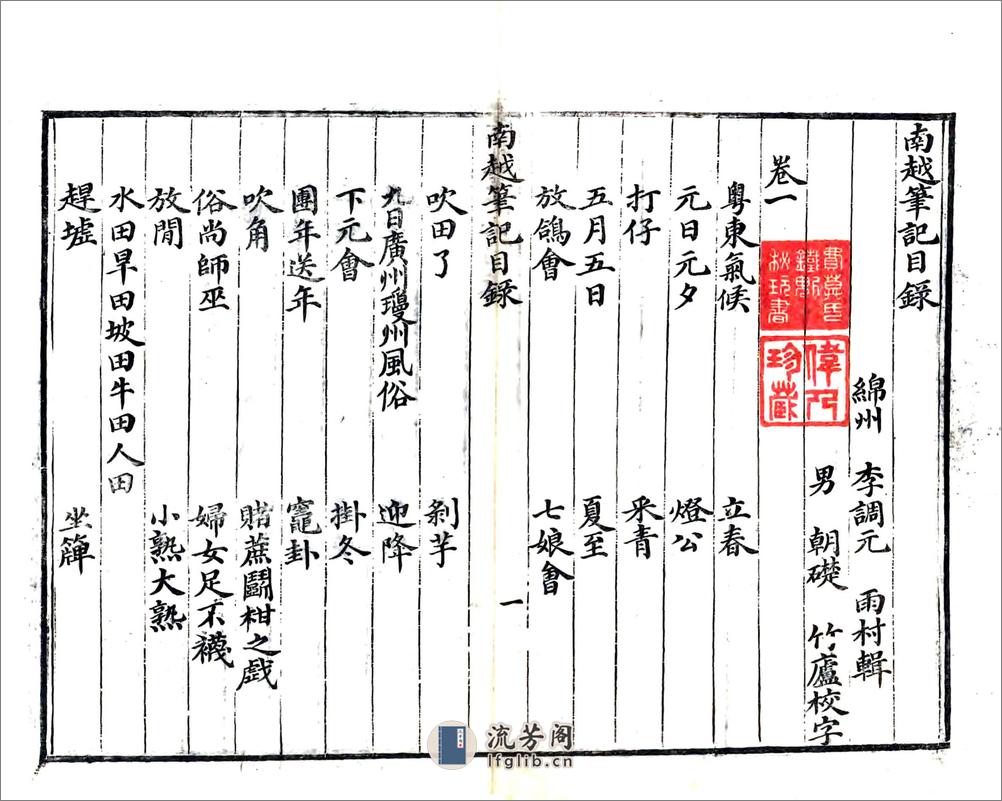 南越筆記目録
綿州 李調元 雨村輯
男 朝礎 竹廬校字
卷一
粵東氣候 立春
元日元夕 燈公
打仔 采青
五月五日 夏至
放鴿會 七娘會
南越筆記目録 一
吹田了 剝芋
九日廣州瓊州風俗 迎降
下元會 掛冬
團年送年 竈卦
吹角 賭蔗鬭柑之戲
俗尚師巫 婦女足不襪
放閒 小熟大熟
水田旱田坡田牛田人田
趕墟 坐簰
偉人珍藏
流芳阁
lfglib.cn